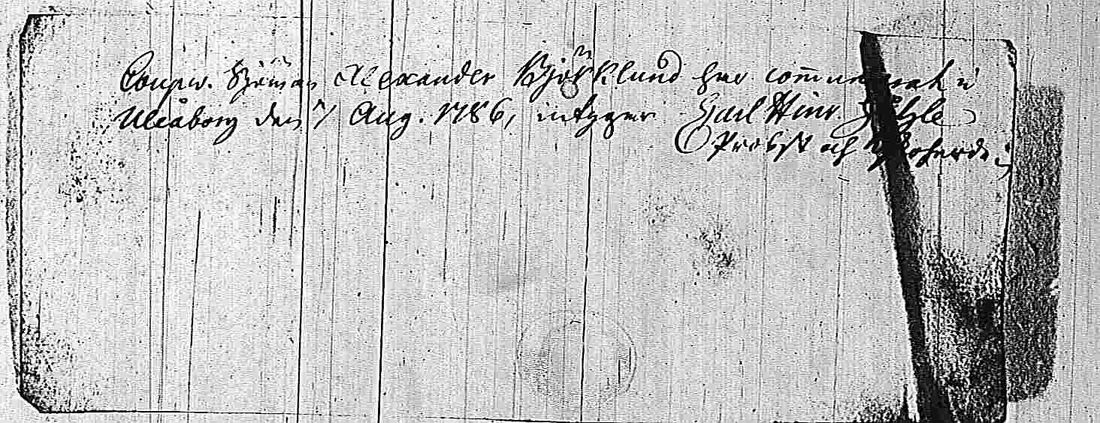 Coopv. Sjöman Alexander Björklund har communicat i
Uleåborg den 7 Aug. 1786, intygar Carl Hinr.
Probst och Kyrkoherde